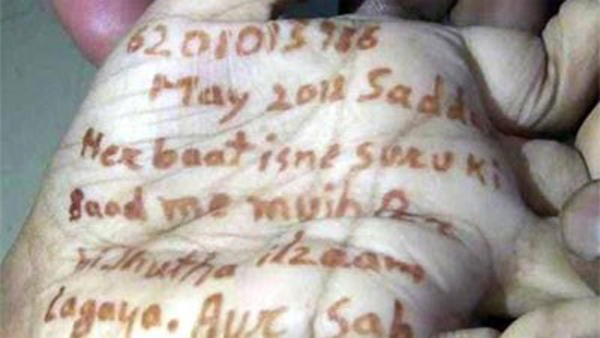 6201013986
May 2018 Sadd
Her baat isne suru ki
Baad me mujh
Jhutha ilzaam
lagaya. Aur Sab